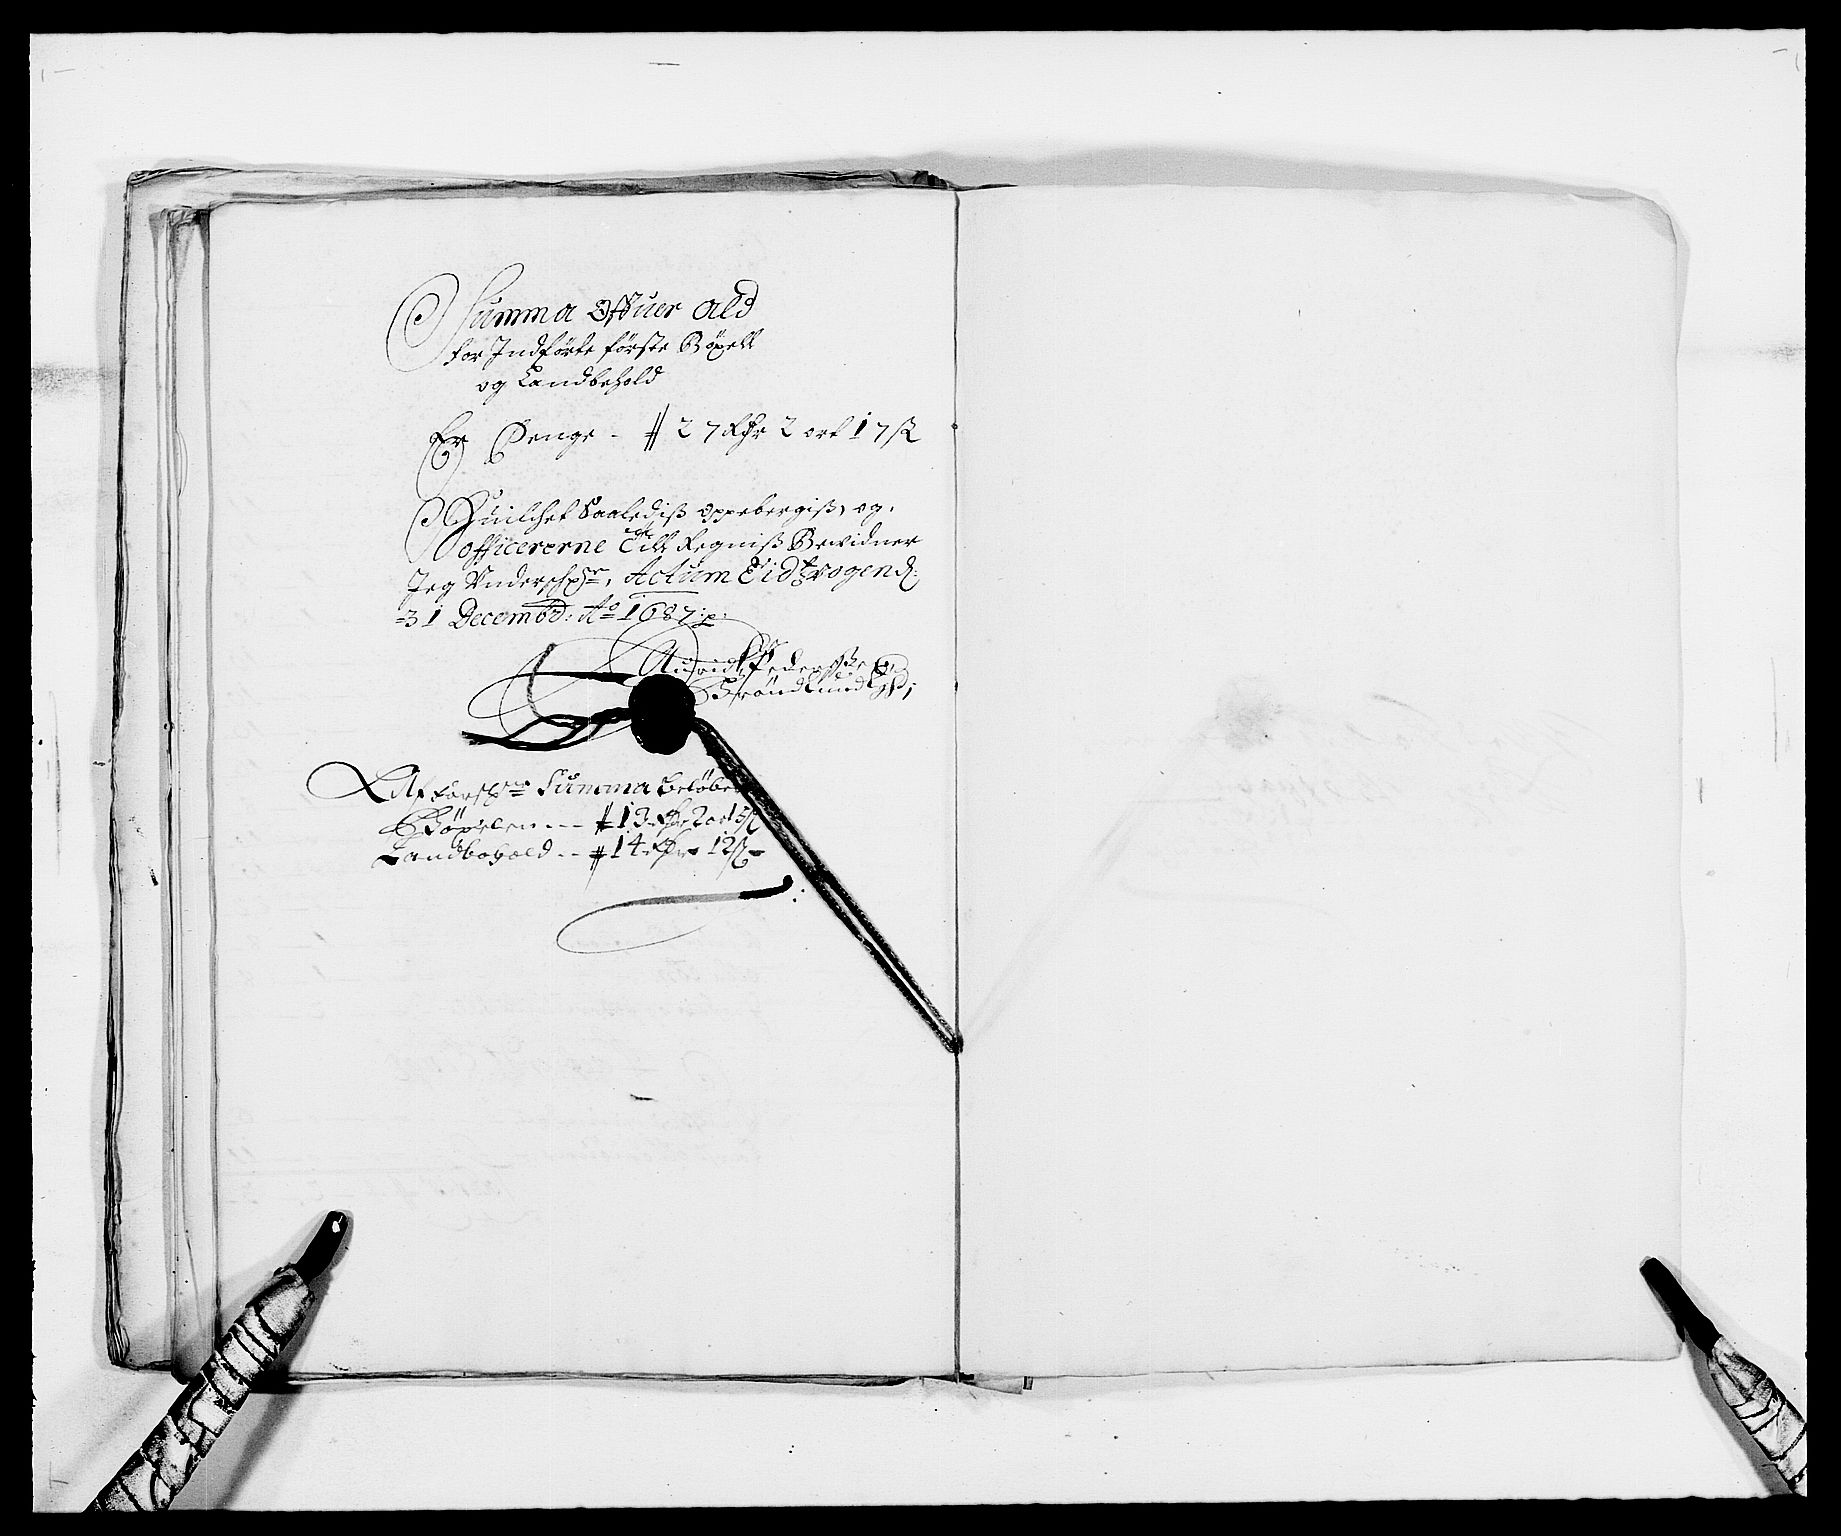 Summa Offuer ald
for Indførte første Bøxell
og Landbehold
Er Penge - # 27 Rdr 2 ort 17 ß
Huilchet Saaledis oppebergis, og
officererne till Regnis Bewidner
Jeg Underschr:, Actum Eidtzvogen d:
31 Decembr: Ao 1687 p:
Pederss
Aff forschr: Summa beløber
Bøxelen --- # 13 Rdr 2 ort 5 ß
Landbohold -- # 14 Rdr 12 ß -